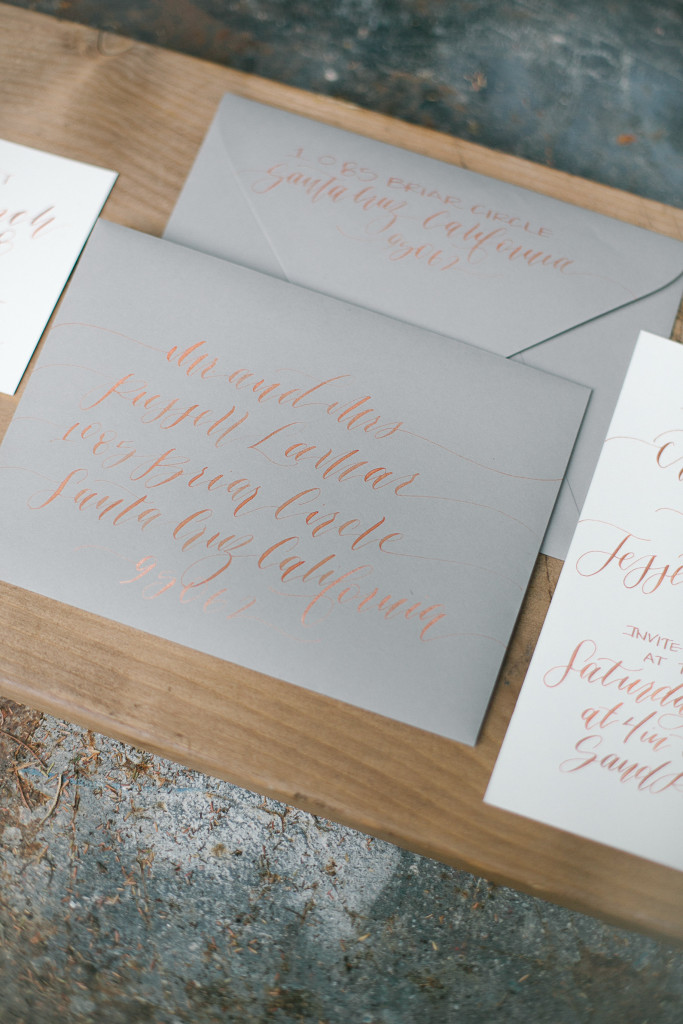 1089 BRIAR CIRCLE
Santa Cruz California
Mr and Mrs
Russell Lamar
1089 Briar Circle
Santa Cruz California
Jesse
INVITE
AT
Saturda
at 4
Sand